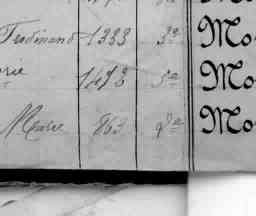 Ferdinand 1333 3ª Mo
rie 1473 5ª Mo
Marie 863 9ª Mo